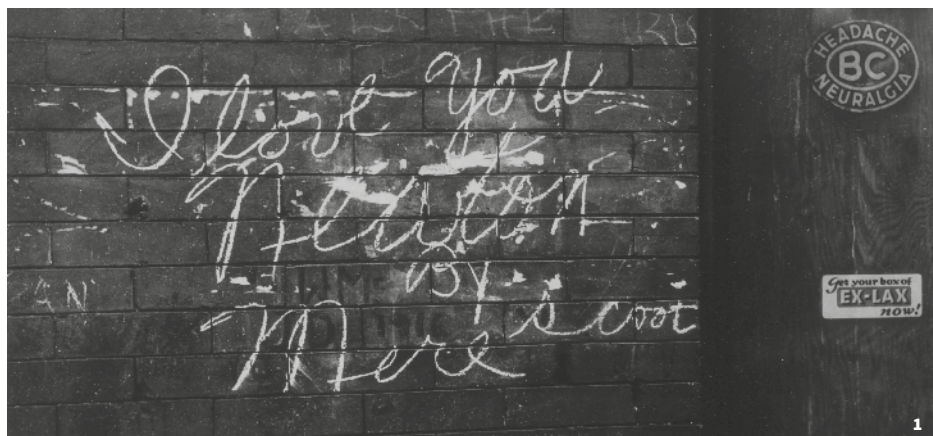 I love you
Newton
By
Mere
scoot
AN
HEADACHE
BC
NEURALGIA
Get your box of
EX-LAX
now!
1